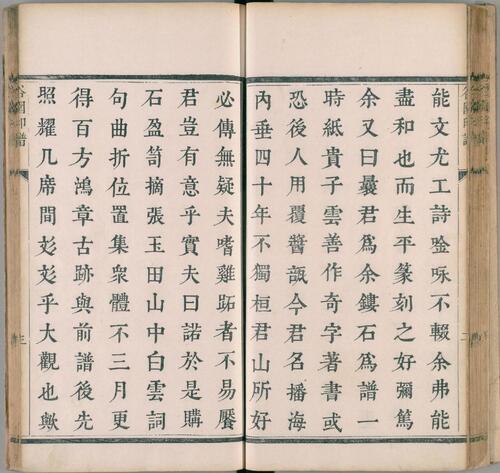 能文尤工詩唫咏不輟余弗能
盡和也而生平篆刻之好彌篤
余又曰曩君爲余鏤石爲譜一
時紙貴子雲善作奇字著書或
恐後人用覆醬瓿今君名播海
內垂四十年不獨桓君山所好
必傳無疑夫嗜雞跖者不易饜
君豈有意乎實夫曰諾於是購
石盈笥摘張玉田山中白雲詞
句曲折位置集衆體不三月更
得百方鴻章古跡與前譜後先
照耀几席間彣彣乎大觀也歟
谷園印譜
三